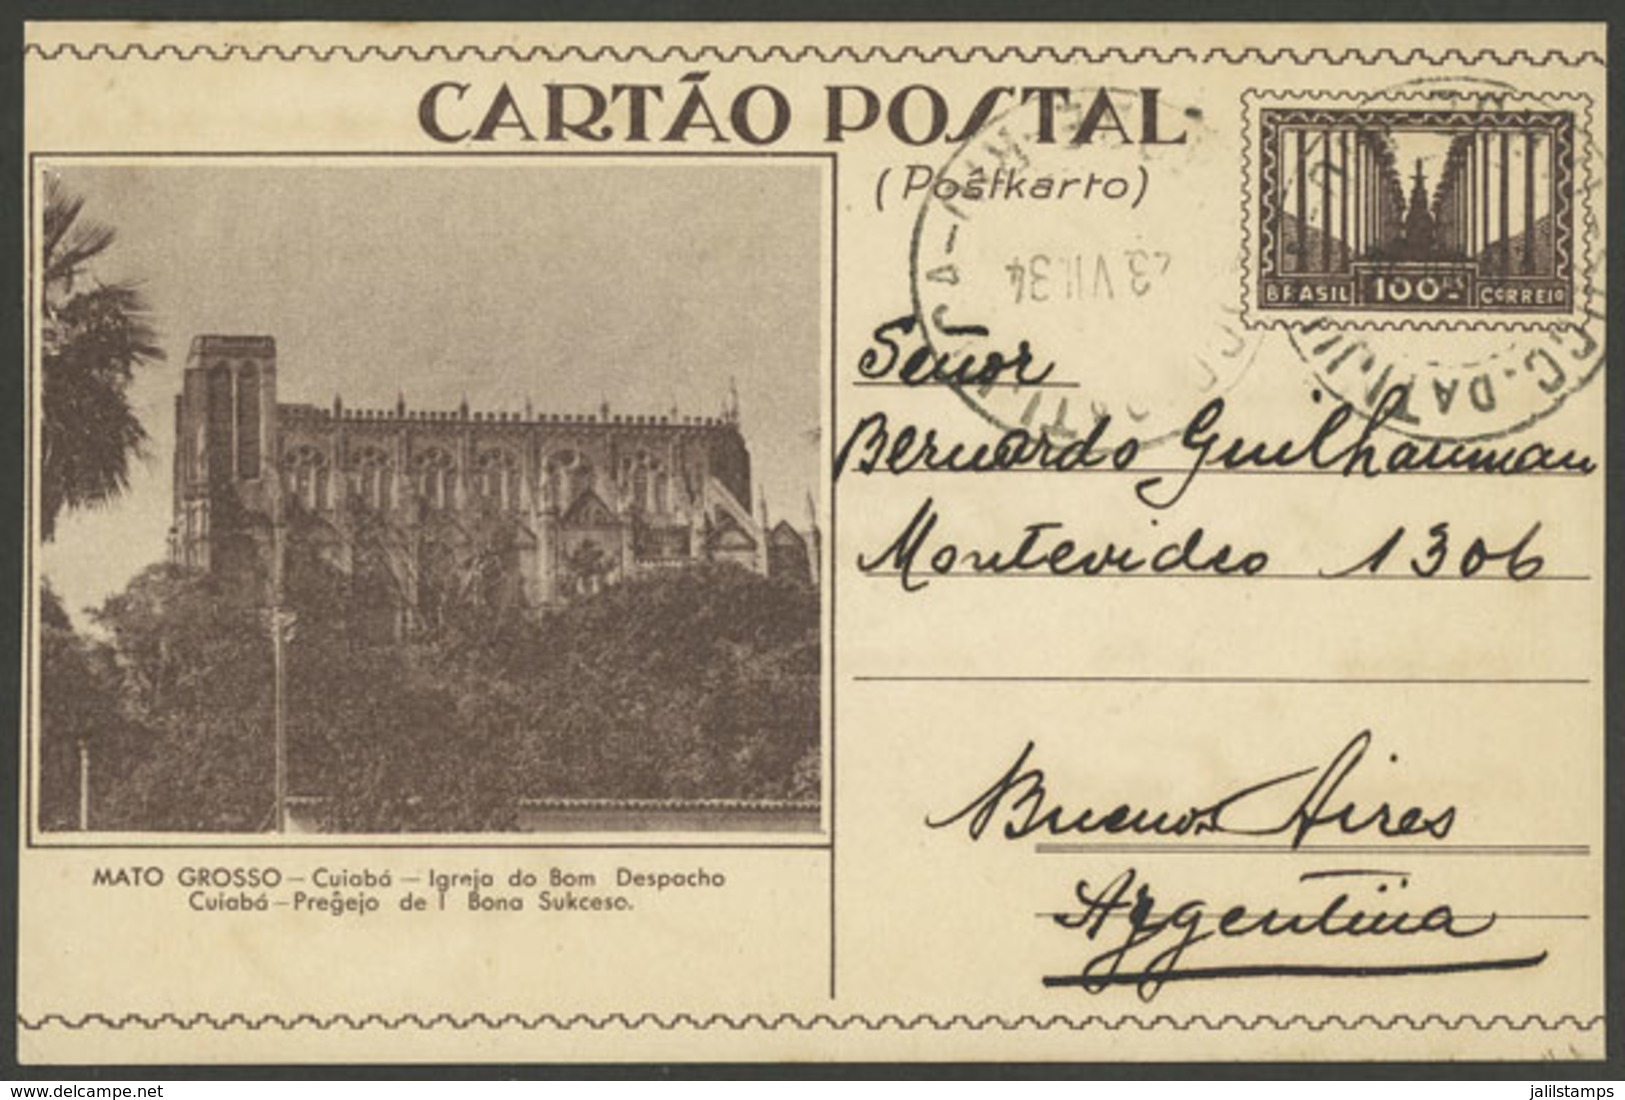 CARTÃO POSTAL
(Poŝtkarto)
23.VII.34
BRASIL 100RS CORREIO
Señor
Bernardo Guilhauman
Montevideo 1306
Buenos Aires
Argentina
MATO GROSSO – Cuiabá – Igreja do Bom Despacho
Cuiabá – Preĝejo de l' Bona Sukceso.
delcampe.net
jalilstamps